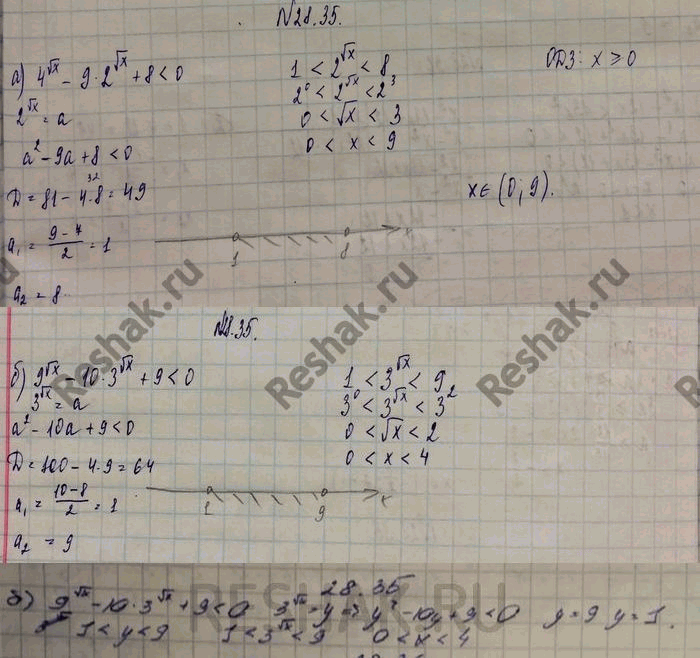 №28.35.
а) 4^√x − 9·2^√x + 8 < 0
2^√x = a
a² − 9a + 8 < 0
D = 81 − 4·8 = 49
32
a₁ = (9−7)/2 = 1
a₂ = 8
1 8 x
1 < 2^√x < 8
2⁰ < 2^√x < 2³
0 < √x < 3
0 < x < 9
ОДЗ: x ≥ 0
x ∈ (0; 9).
Reshak.ru
Reshak.ru
Reshak.ru
№28.35.
б) 9^√x − 10·3^√x + 9 < 0
3^√x = a
a² − 10a + 9 < 0
D = 100 − 4·9 = 64
a₁ = (10−8)/2 = 1
a₂ = 9
1 9 x
1 < 3^√x < 9
3⁰ < 3^√x < 3²
0 < √x < 2
0 < x < 4
28.35
RESHAK.RU
б) 9^√x − 10·3^√x + 9 < 0 3^√x = y ⇒ y² − 10y + 9 < 0 y = 9 y = 1.
1 < y < 9 1 < 3^√x < 9 0 < x < 4